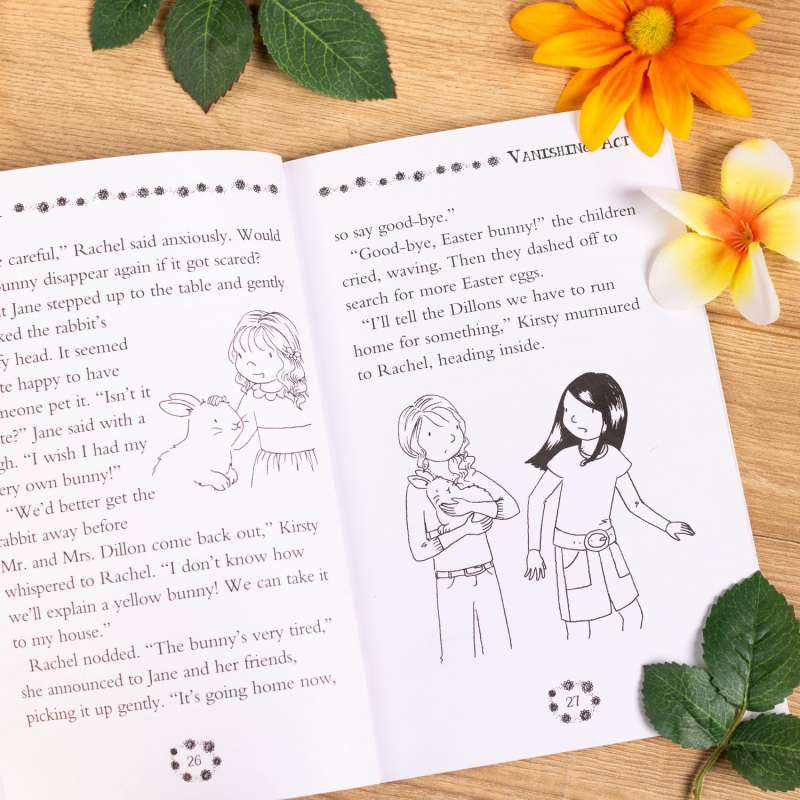 careful,” Rachel said anxiously. Would
unny disappear again if it got scared?
t Jane stepped up to the table and gently
ked the rabbit’s
fy head. It seemed
te happy to have
meone pet it. “Isn’t it
te?” Jane said with a
gh. “I wish I had my
ery own bunny!”
“We’d better get the
rabbit away before
Mr. and Mrs. Dillon come back out,” Kirsty
whispered to Rachel. “I don’t know how
we’ll explain a yellow bunny! We can take it
to my house.”
Rachel nodded. “The bunny’s very tired,”
she announced to Jane and her friends,
picking it up gently. “It’s going home now,
26
Vanishing Act
so say good-bye.”
“Good-bye, Easter bunny!” the children
cried, waving. Then they dashed off to
search for more Easter eggs.
“I’ll tell the Dillons we have to run
home for something,” Kirsty murmured
to Rachel, heading inside.
27